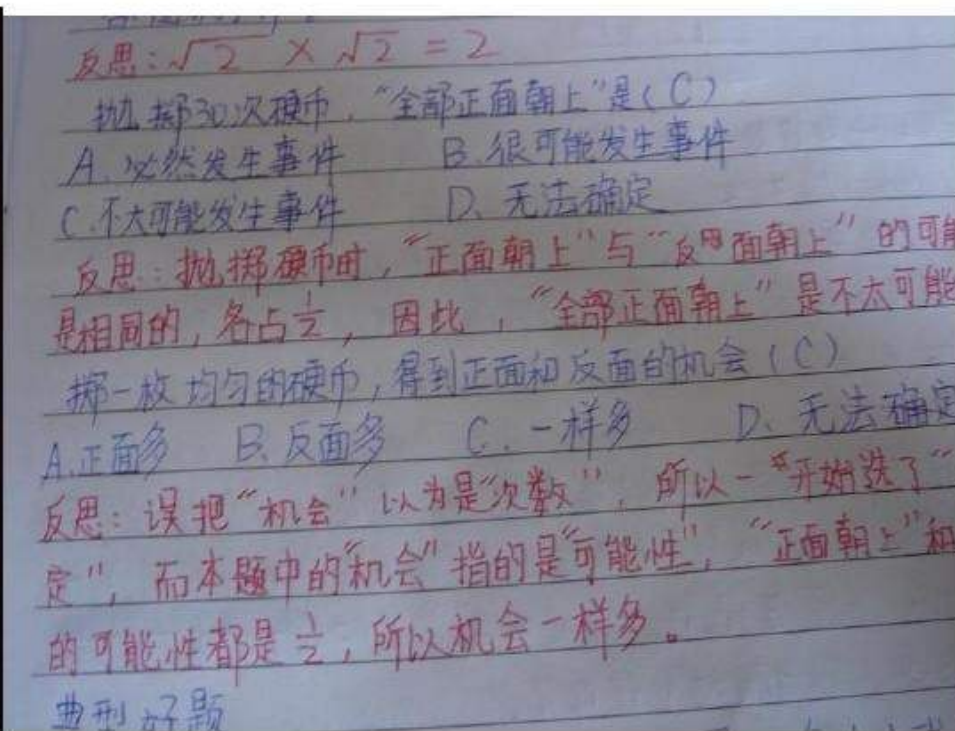 反思:√2 × √2 = 2
抛掷30次硬币,“全部正面朝上”是(C)
A. 必然发生事件 B. 很可能发生事件
C. 不大可能发生事件 D、无法确定
反思:抛掷硬币时,“正面朝上”与“反面朝上”的可能
是相同的,各占1/2,因此,“全部正面朝上”是不太可能
掷一枚均匀的硬币,得到正面和反面的机会(C)
A.正面多 B.反面多 C.一样多 D、无法确定
反思:误把“机会”以为是“次数”,所以一开始选了“
定”,而本题中的“机会”指的是“可能性”,“正面朝上”和
的可能性都是1/2,所以机会一样多。
典型好题